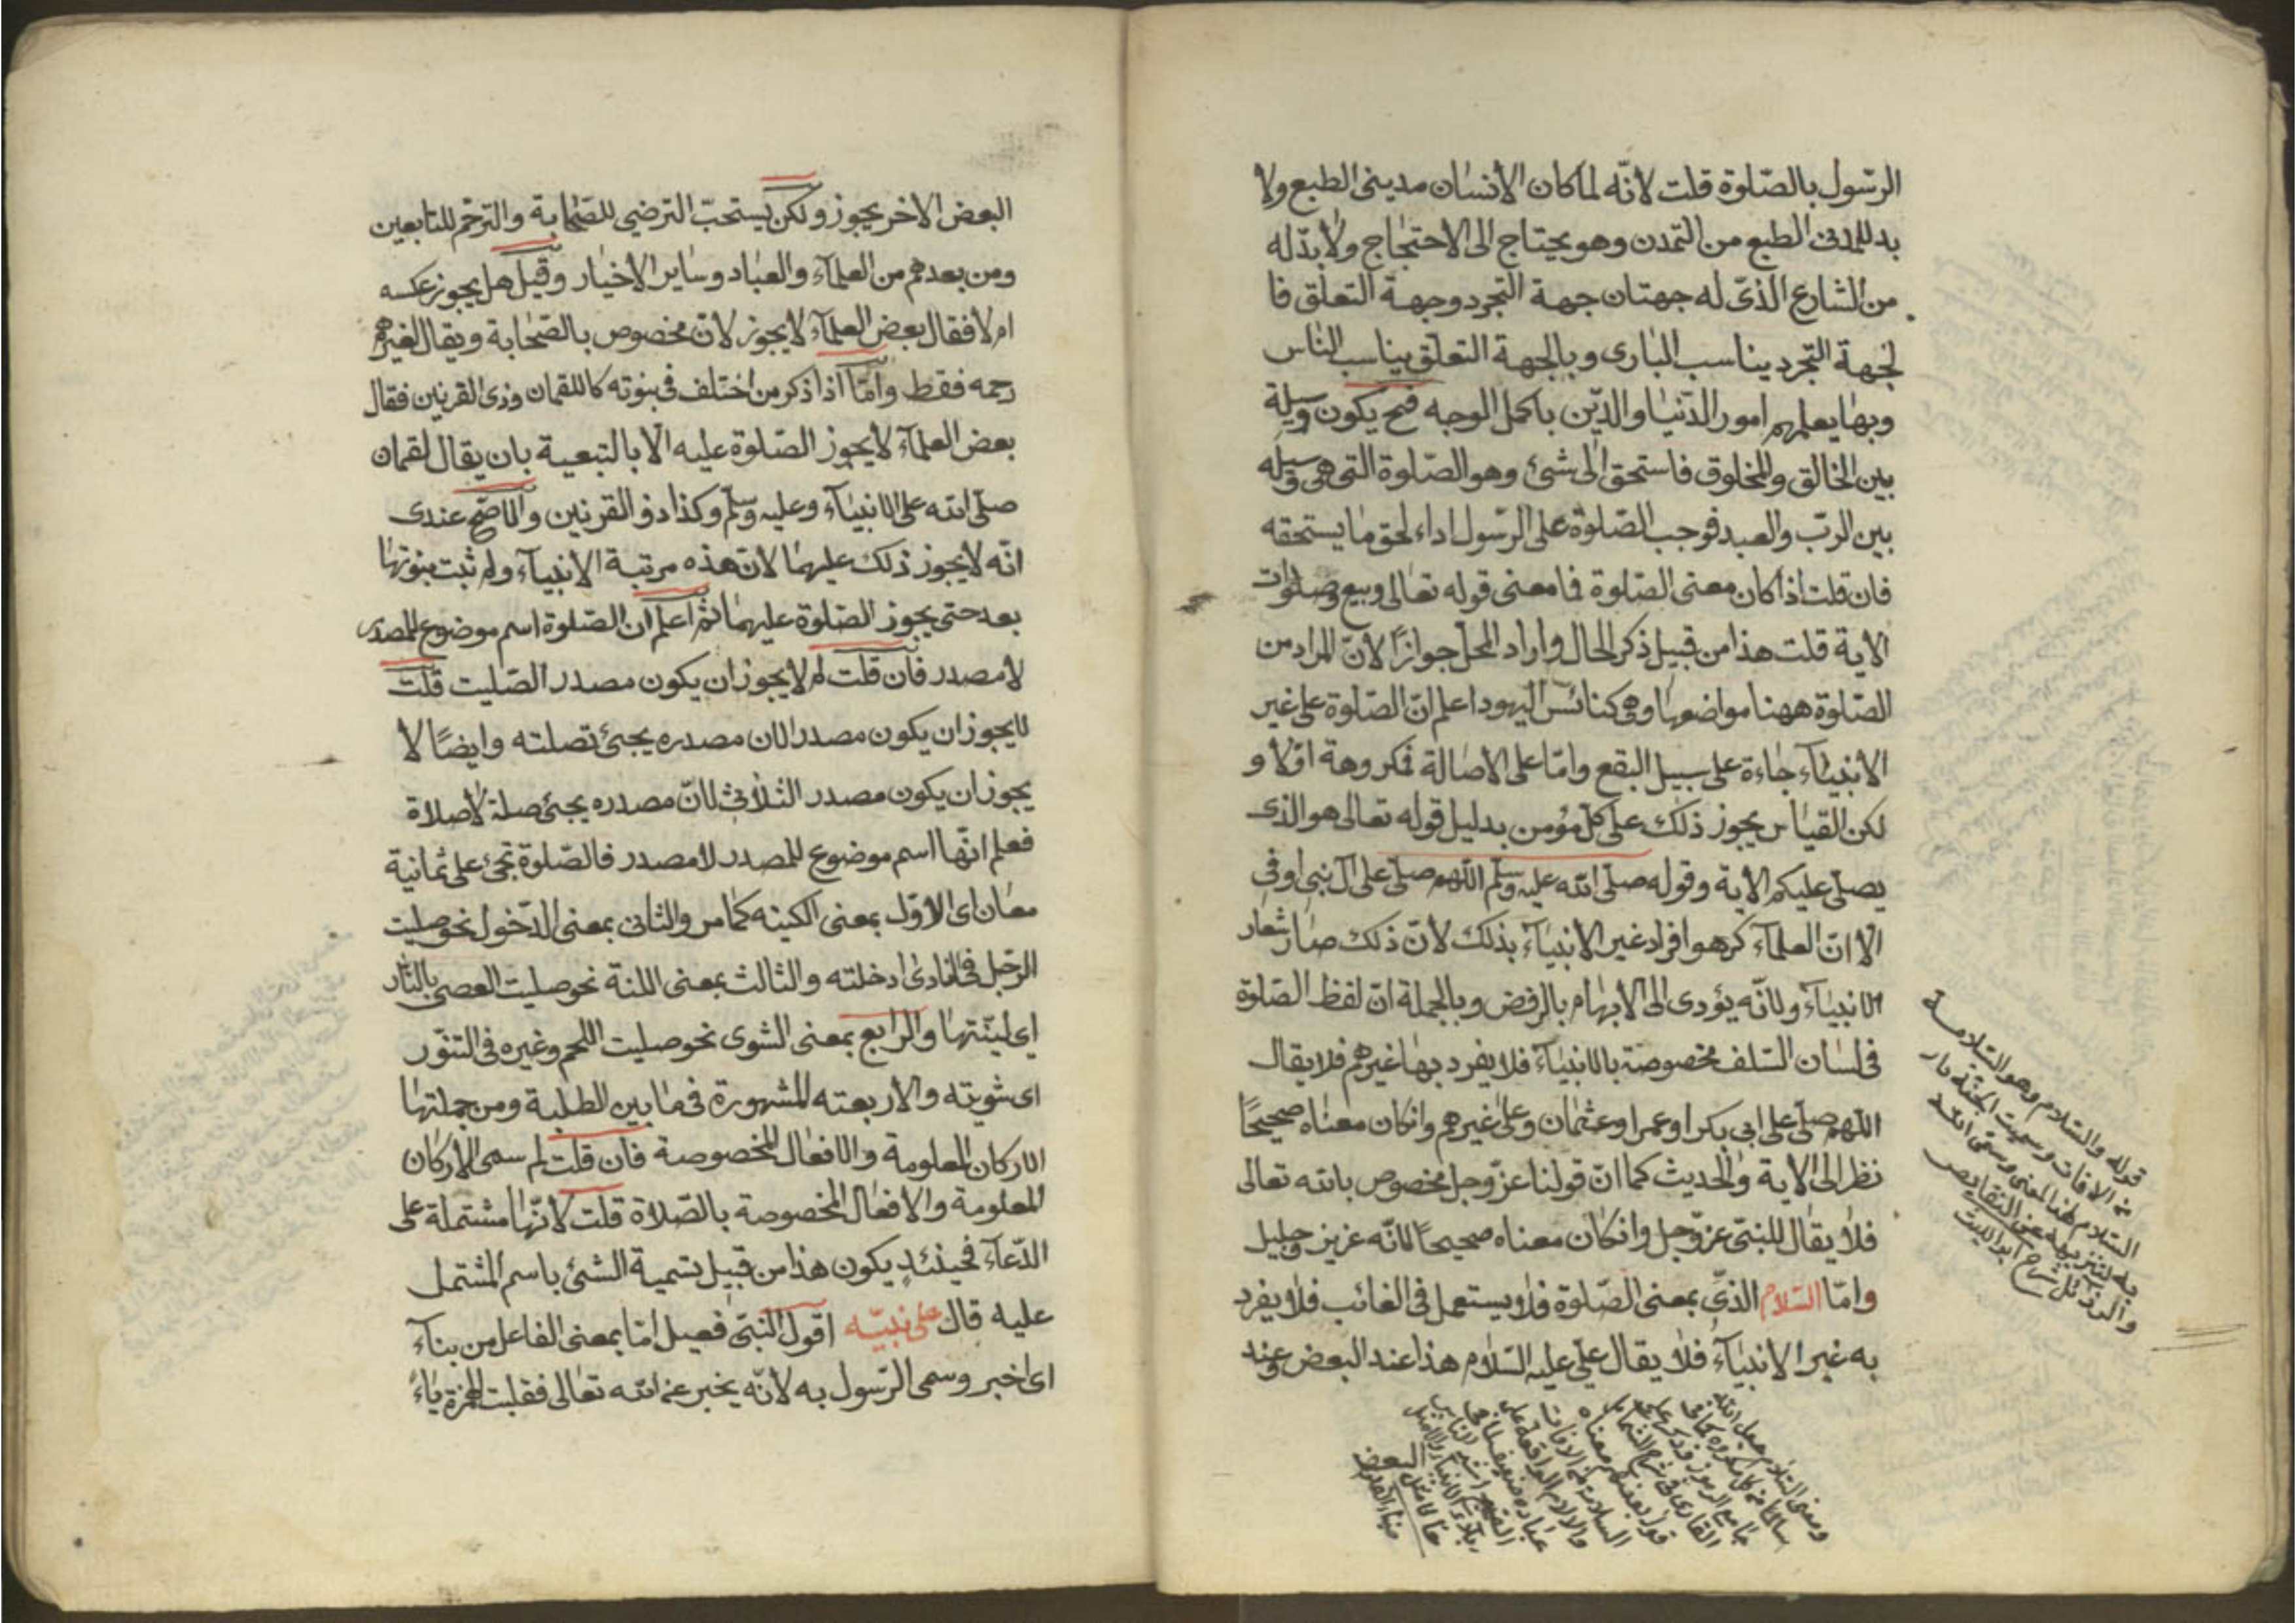 الرّسول بالصّلوة قلت لانّه لما كان الأنسان مدينى الطبع ولا
بد للمدنى الطبع من التمدن وهو يحتاج الى الاحتجاج ولا بدّ له
من الشارع الذى له جهتان جهة التجرد وجهة التعلق فا
لجهة التجرد يناسب البارى وبالجهة التعلق يناسب الناس
وبها يعلمهم امور الدّنيا والدّين باكمل الوجه فح يكون وسيلة
بين الخالق والمخلوق فاستحق الى شئ وهو الصّلوة التى هى وسيله
بين الربّ والعبد فوجب الصّلوة على الرّسول اداء لحق ما يستحقه
فان قلت اذا كان معنى الصّلوة فما معنى قوله تعالى وبيع وصلوات
الاية قلت هذا من قبيل ذكر الحال واراد المحل جوازًا لانّ المراد من
الصّلوة ههنا مواضعها وهى كنائس اليهود اعلم انّ الصّلوة على غير
الانبياء جاءة على سبيل التبع وامّا على الاصالة فمكروهة اوّلا و
لكن القياس يجوز ذلك على كل مؤمن بدليل قوله تعالى هو الذى
يصلّى عليكم الاية وقوله صلّى الله عليه وسلّم اللّهم صلّ على آل نبى اوفى
الا انّ العلماء كرهوا افراد غير الانبياء بذلك لانّ ذلك صار شعار
الانبياء ولانّه يؤدى الى الابهام بالرفض وبالجملة انّ لفظ الصّلوة
فى لسان السّلف مخصوصة بالانبياء فلا يفرد بها غيرهم فلا يقال
اللّهم صلّ على ابى بكر او عمر او عثمان وعلى غيرهم وان كان معناه صحيحًا
نظر الى الاية والحديث كما انّ قولنا عزّ وجل مخصوص بالله تعالى
فلا يقال للنبى عزّ وجل وان كان معناه صحيحًا لانّه عزيز وجليل
وامّا السّلام الذى بمعنى الصّلوة فلا يستعمل فى الغائب فلا يفرد
به غير الانبياء فلا يقال علىّ عليه السّلام هذا عند البعض وعند
قوله والسّلام وهو السّلامة
من الافات وسميت الجنّة دار
السّلام لهذا المعنى وسمّى الله
به لتنزيهه عن النقايص
والرذائل شرح ابو الليث
البعض
البعض الاخر يجوز ولكن يستحبّ الترضى للصّحابة والترحّم للتابعين
ومن بعدهم من العلماء والعباد وساير الاخيار وقيل هل يجوز عكسه
ام لا فقال بعض العلماء لا يجوز لانّ مخصوص بالصّحابة ويقال لغيرهم
رحمه فقط وامّا اذا ذكر من اختلف فى بنوته كاللقمان وذى القرنين فقال
بعض العلماء لا يجوز الصّلوة عليه الّا بالتبعية بان يقال لقمان
صلّى الله على الانبياء وعليه وسلّم وكذا ذو القرنين والاصحّ عندى
انّه لا يجوز ذلك عليهما لانّ هذه مرتبة الانبياء ولم ثبت بنوتها
بعد حتى يجوز الصّلوة عليهما ثم اعلم ان الصّلوة اسم موضوع للمصدر
لا مصدر فان قلت لم لا يجوز ان يكون مصدر الصّليت قلت
لا يجوز ان يكون مصدرا لان مصدره يجئ تصلته وايضًا لا
يجوز ان يكون مصدر الثلاثى لانّ مصدره يجئ صلة لا صلاة
فعلم انّها اسم موضوع للمصدر لا مصدر فالصّلوة تجئ على ثمانية
معان اى الاوّل بمعنى الكينه كما مر والثانى بمعنى الدّخول نحو صليت
الرّجل فى النادى ادخلته والثالث بمعنى اللنة نحو صليت العصى بالنّار
اى لينّتها والرابع بمعنى الشوى نحو صليت اللحم وغيره فى التنّور
اى شويته والاربعته المشهورة فى ما بين الطلبة ومن جملتها
الاركان المعلومة والافعال المخصوصة فان قلت لم سمى الاركان
المعلومة والافعال المخصوصة بالصّلاة قلت لانّها مشتملة على
الدّعاء فحينئذٍ يكون هذا من قبيل تسمية الشئ باسم المشتمل
عليه قال على نبيّه اقول النبى فعيل امّا بمعنى الفاعل من بناء
اى اخبر وسمى الرّسول به لانّه يخبر عن الله تعالى فقلبت الهمزة ياءً